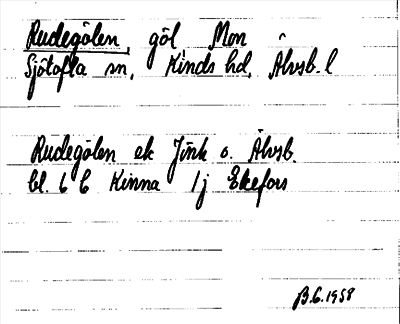 Rudegölen, göl Mon i
Sjötofta sn, Kinds hd, Älvsb. l
Rudegölen ek Jönk o. Älvsb.
bl. 6 C Kinna 1j Ekefors
B.G. 1958